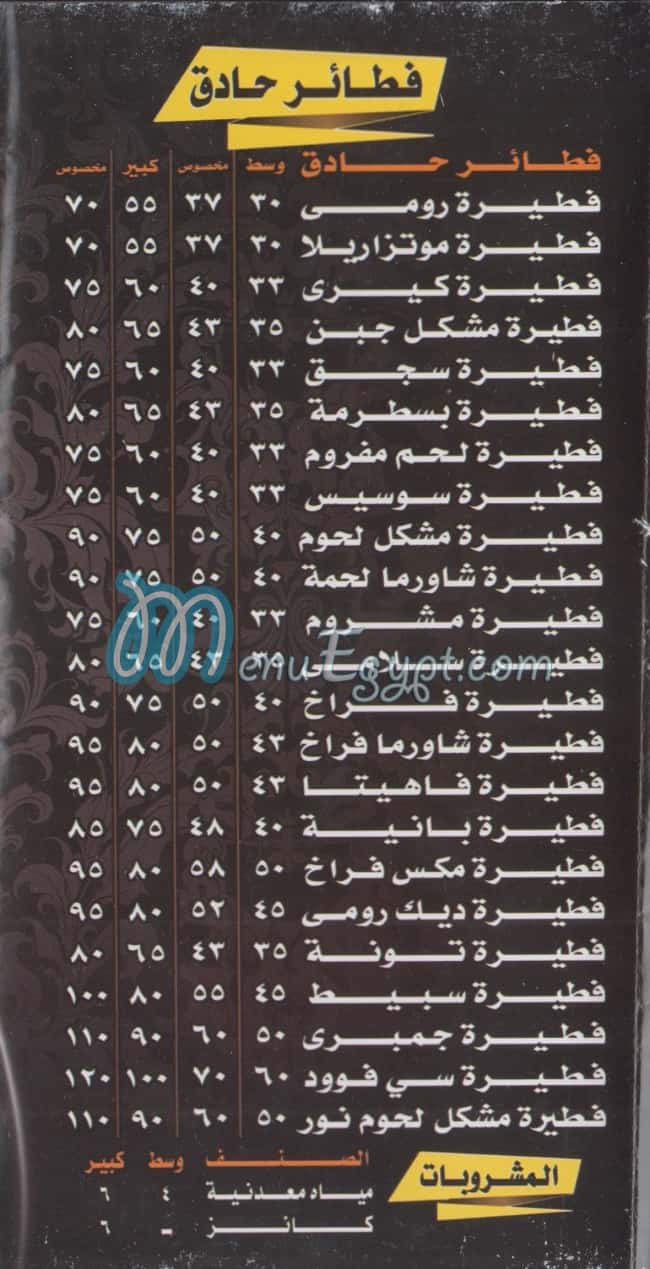 فطائر حادق
فطائر حادق وسط مخصوص كبير مخصوص
فطيرة رومى ٣٠ ٣٧ ٥٥ ٧٠
فطيرة موتزاريلا ٣٠ ٣٧ ٥٥ ٧٠
فطيرة كيرى ٣٣ ٤٠ ٦٠ ٧٥
فطيرة مشكل جبن ٣٥ ٤٣ ٦٥ ٨٠
فطيرة سجق ٣٣ ٤٠ ٦٠ ٧٥
فطيرة بسطرمة ٣٥ ٤٣ ٦٥ ٨٠
فطيرة لحم مفروم ٣٣ ٤٠ ٦٠ ٧٥
فطيرة سوسيس ٣٣ ٤٠ ٦٠ ٧٥
فطيرة مشكل لحوم ٤٠ ٥٠ ٧٥ ٩٠
فطيرة شاورما لحمة ٤٠ ٥٠ ٧٥ ٩٠
فطيرة مشروم ٣٣ ٤٠ ٦٠ ٧٥
فطيرة سلامى ٣٥ ٤٣ ٦٥ ٨٠
MenuEgypt.com
فطيرة فراخ ٤٠ ٥٠ ٧٥ ٩٠
فطيرة شاورما فراخ ٤٣ ٥٠ ٨٠ ٩٥
فطيرة فاهيتا ٤٣ ٥٠ ٨٠ ٩٥
فطيرة بانية ٤٠ ٤٨ ٧٥ ٨٥
فطيرة مكس فراخ ٥٠ ٥٨ ٨٠ ٩٥
فطيرة ديك رومى ٤٥ ٥٢ ٨٠ ٩٥
فطيرة تونة ٣٥ ٤٣ ٦٥ ٨٠
فطيرة سبيط ٤٥ ٥٥ ٨٠ ١٠٠
فطيرة جمبرى ٥٠ ٦٠ ٩٠ ١١٠
فطيرة سي فوود ٦٠ ٧٠ ١٠٠ ١٢٠
فطيرة مشكل لحوم نور ٥٠ ٦٠ ٩٠ ١١٠
المشروبات
الصنف وسط كبير
مياه معدنية ٤ ٦
كانز - ٦